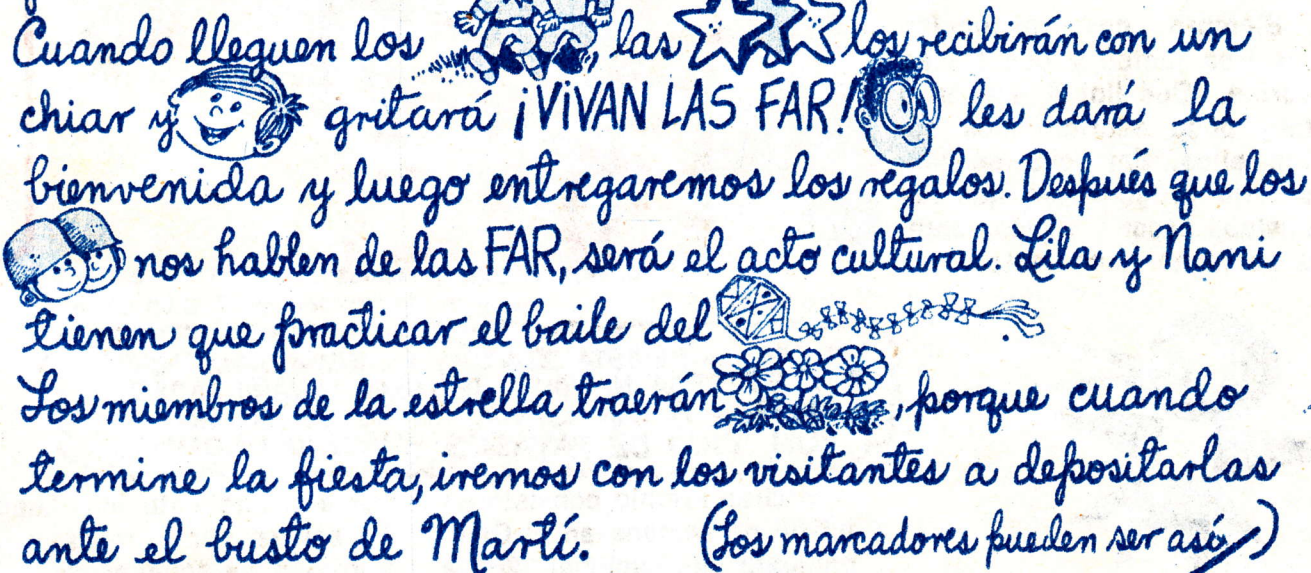 Cuando lleguen los , las los recibirán con un
chiar y gritará ¡VIVAN LAS FAR! les dará la
bienvenida y luego entregaremos los regalos. Después que los
nos hablen de las FAR, será el acto cultural. Lila y Nani
tienen que practicar el baile del
Los miembros de la estrella traerán , porque cuando
termine la fiesta, iremos con los visitantes a depositarlas
ante el busto de Martí. (Los marcadores pueden ser así)